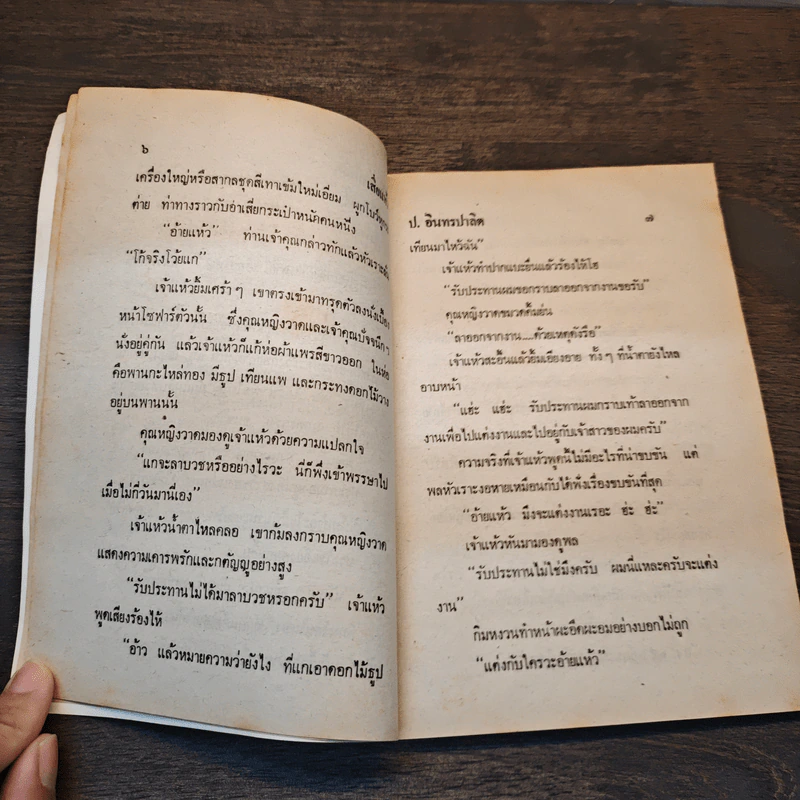 ๖
เครื่องใหญ่หรือสากลชุดสีเทาเข้มใหม่เอี่ยม
ต่าย ท่าทางราวกับอาเสี่ยกระเป๋าหนักคนหนึ่ง
"อ้ายแห้ว" ท่านเจ้าคุณกล่าวทักแล้วหัวเราะ
"โก้จริงโว้ยแก"
เจ้าแห้วยิ้มเศร้าๆ เขาตรงเข้ามาทรุดตัวลงนั่ง
หน้าโซฟาร์ตัวนั้น ซึ่งคุณหญิงวาดและเจ้าคุณปัจจนึกฯ
นั่งอยู่คู่กัน แล้วเจ้าแห้วก็แก้ห่อผ้าแพรสีขาวออก ในห่อ
คือพานกะไหล่ทอง มีธูป เทียนแพ และกระทงดอกไม้วาง
อยู่บนพานนั้น
คุณหญิงวาดมองดูเจ้าแห้วด้วยความแปลกใจ
"แกจะลาบวชหรืออย่างไรวะ นี่ก็พึ่งเข้าพรรษาไป
เมื่อไม่กี่วันมานี่เอง"
เจ้าแห้วน้ำตาไหลคลอ เขาก้มลงกราบคุณหญิงวาด
แสดงความเคารพรักและกตัญญูอย่างสูง
"รับประทานไม่ได้มาลาบวชหรอกครับ" เจ้าแห้ว
พูดเสียงร้องไห้
"อ้าว แล้วหมายความว่ายังไง ที่แกเอาดอกไม้ธูป
ป. อินทรปาลิต ๗
เทียนมาไหว้ฉัน"
เจ้าแห้วทำปากแบะยื่นแล้วร้องไห้โฮ
"รับประทานผมขอกราบลาออกจากงานขอรับ"
คุณหญิงวาดขมวดคิ้มย่น
"ลาออกจากงาน.....ด้วยเหตุดังรือ"
เจ้าแห้วสะอื้นแล้วยิ้มเอียงอาย ทั้งๆ ที่น้ำตายังไหล
อาบหน้า
"แฮ่ะ แฮ่ะ รับประทานผมกราบเท้าลาออกจาก
งานเพื่อไปแต่งงานและไปอยู่กับเจ้าสาวของผมครับ"
ความจริงที่เจ้าแห้วพูดนี้ไม่มีอะไรที่น่าขบขัน แต่
พลหัวเราะงอหายเหมือนกับได้ฟังเรื่องขบขันที่สุด
"อ้ายแห้ว มึงจะแต่งงานเรอะ ฮ่ะ ฮ่ะ"
เจ้าแห้วหันมามองดูพล
"รับประทานไม่ใช่มึงครับ ผมนี่แหละครับจะแต่ง
งาน"
กิมหงวนทำหน้าผะอืดผะอมอย่างบอกไม่ถูก
"แต่งกับใครวะอ้ายแห้ว"